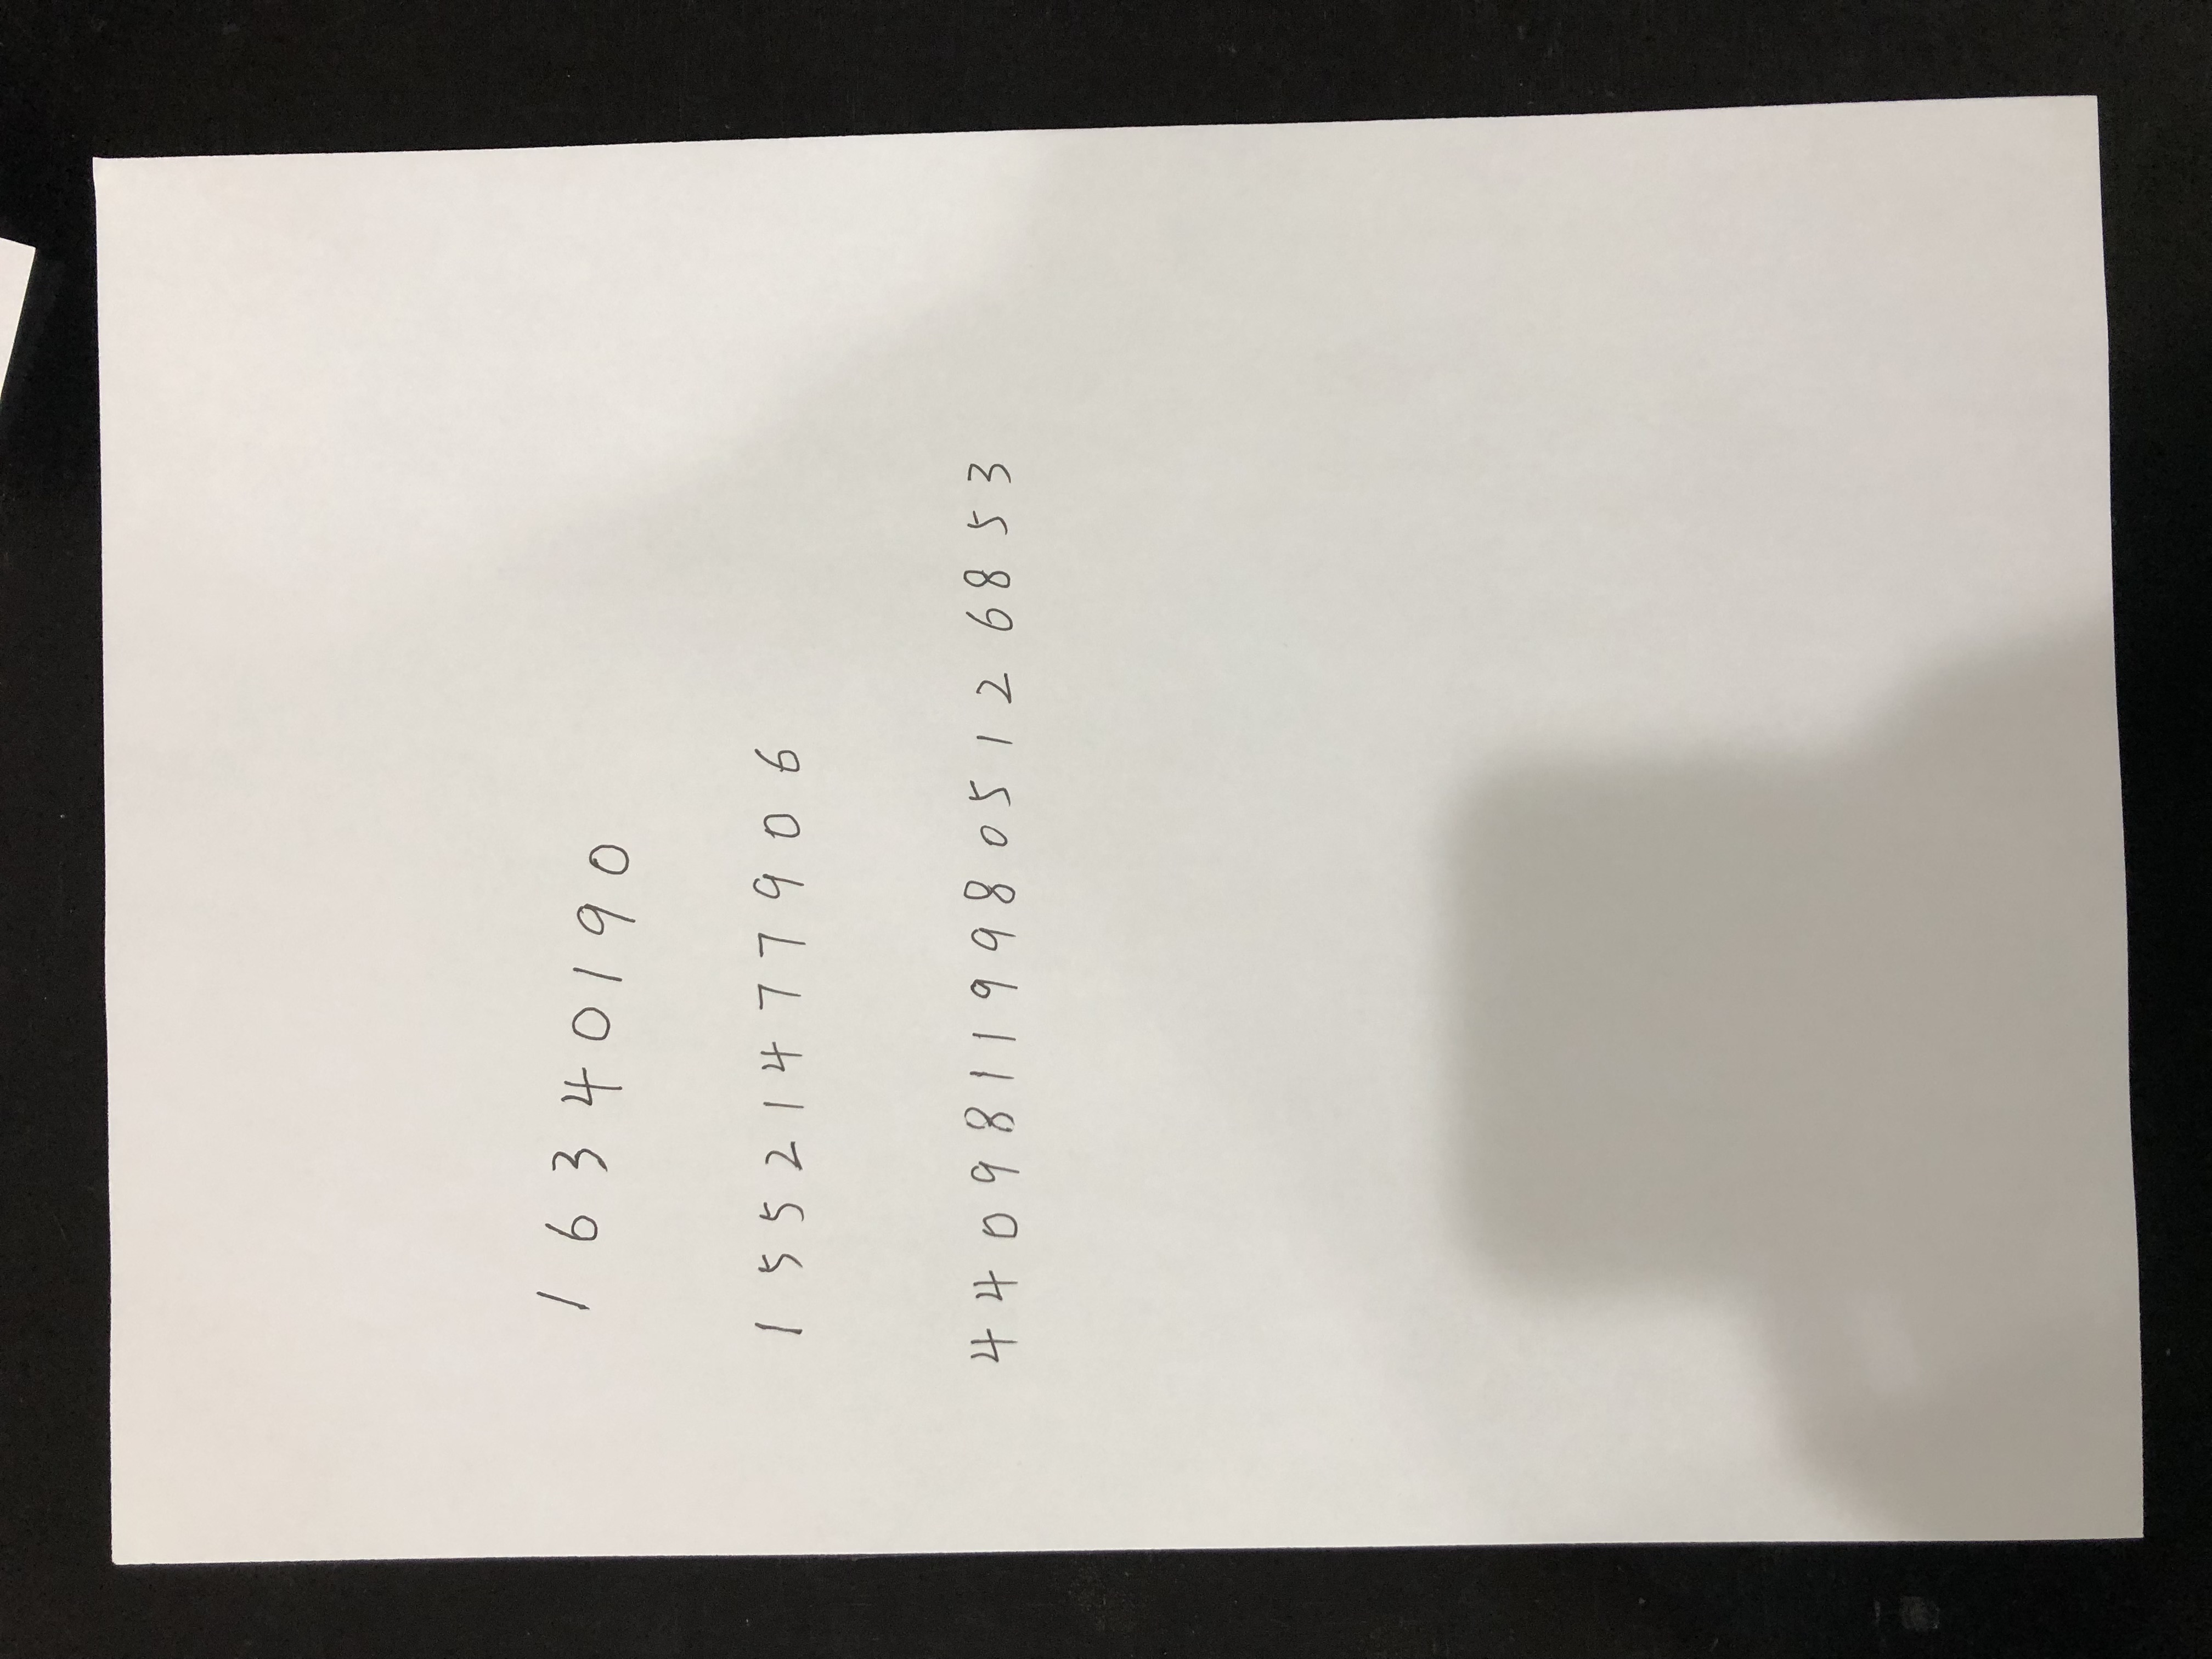 16340190
15521477906
440981199805126853